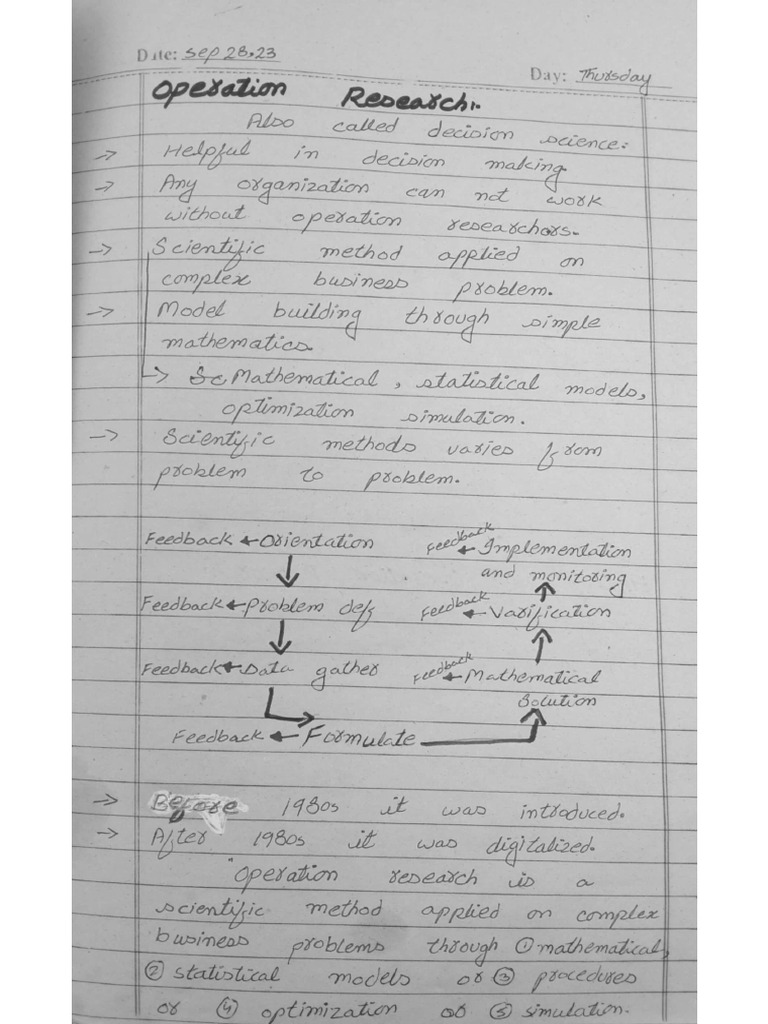 Date: Sep 28, 23
Day: Thursday
Operation Research:.
Also called decision science:
→ Helpful in decision making.
→ Any organization can not work
without operation researchers.
→ Scientific method applied on
complex business problem.
→ Model building through simple
mathematics.
→ Sc, Mathematical, statistical models,
optimization simulation.
→ Scientific methods varies from
problem to problem.
Feedback ← Orientation
Feedback ← Problem def
Feedback ← Data gather
Feedback ← Formulate
Feedback ← Mathematical
Solution
Feedback ← Varification
Feedback ← Implementation
and monitoring
→ Before 1980s it was introduced.
→ After 1980s it was digitalized.
"Operation research is a
scientific method applied on complex
business problems through ① mathematical,
② statistical models or ③ procedures
or ④ optimization or ⑤ simulation.